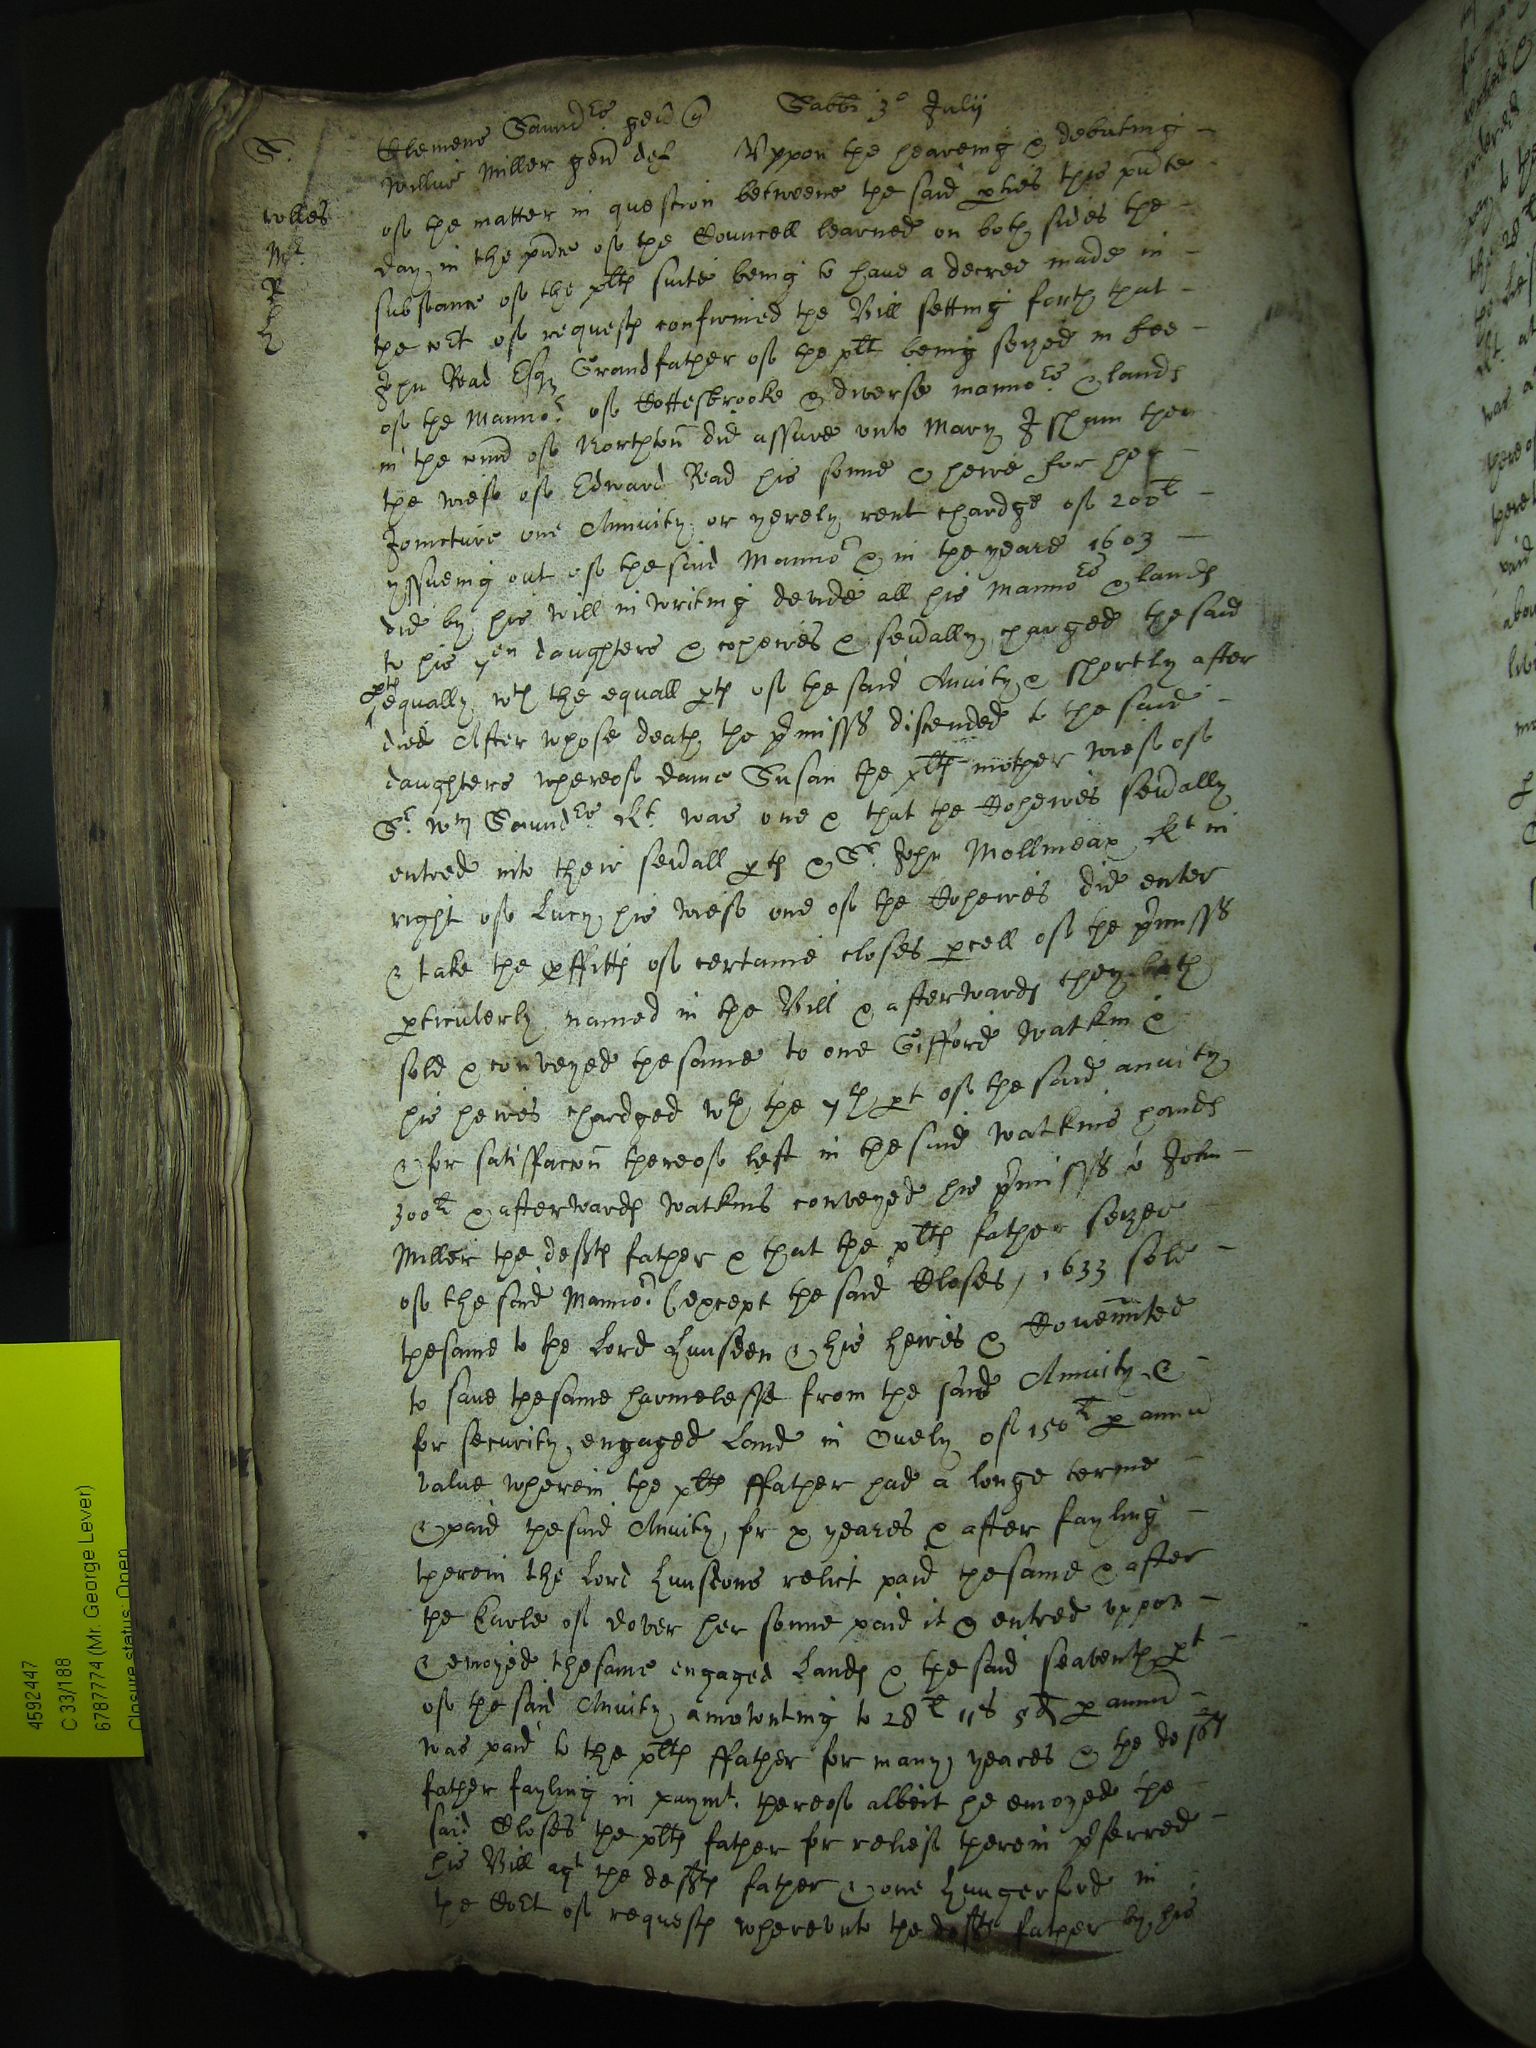 Sabbi 3° Julij
S. Clemens Saundrs gen q
Willus Miller gen def Uppon the heareing & debating
rolles of the matter in question betweene the said pties this pnte
Mr. day in the pnce of the Councell learned on both sides the
R substance of the plts suite being to have a decree made in
L the Cort of requests confirmed the Bill setting forth that
John Read Esqr Grandfather of the plt being seized in fee
of the Mannor of Cottesbrooke & diverse mannors & lands
in the com of Northton did assure unto Mary Isham then
the wiefe of Edward Read his sonne & heire for her
Joincture one Annuity or yerely rent chardge of 200l
yssueing out of the said Mannor & in the yeare 1603
did by his Will in writing devide all his mannors & lands
to his 7en daughters & coheires & sevally charged the said
pts equally wth the equall pts of the said Anuity & shortly after
died After whose death the pmisss discended to the said
daughters whereof dame Susan the plts mother wiefe of
Sr Wm Saundrs Kt. was one & that the Coheires sevally
entred into their sevall pts & Sr. John Mollineax Kt in
right of Lucy his wiefe one of the Coheires did enter
& take the pffitts of certaine closes pcell of the pmisss
pticulerly named in the Bill & afterwards they both
sold & conveyed the same to one Gifford Watkin &
his heires chardged wth the 7th pt of the said anuity
& for satisfaccon thereof left in the said Watkins hands
300l & afterwards Watkins conveyed his pmisss to John
Miller the defts father & that the plts father seized
of the said Mannor (except the said Closes) 1633 sold
the same to the Lord Hunsden & his heires & Covennted
to save the same harmelesse from the said Annuity &
for security engaged Land in Overly of 150l p annu
value wherein the plts ffather had a longe terme
& paid the said Anuity for x yeares & after fayling
therein the Lord Hunsdons relict paid the same & after
the Earle of Dover her sonne paid it & entred uppon
& enioyed the same engaged Lands & the said seaventh pt
of the said Anuity amounting to 28l 11s 5d p annu
was paid to the plts ffather for many yeares & the defts
father fayling in paymt. thereof albeit he enioyed the
said Closes the plts father for reliefe therein pferred
his Bill agt the defts father & one Hungerford in
the Cort of requests whereunto the defts father by his
4592447
C 33/188
6787774 (Mr. George Lever)
Closure status: Open